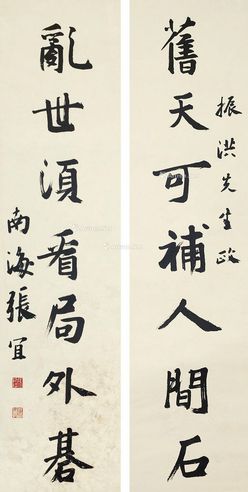 振洪先生政
舊天可補人間石
亂世須看局外碁
南海張宜